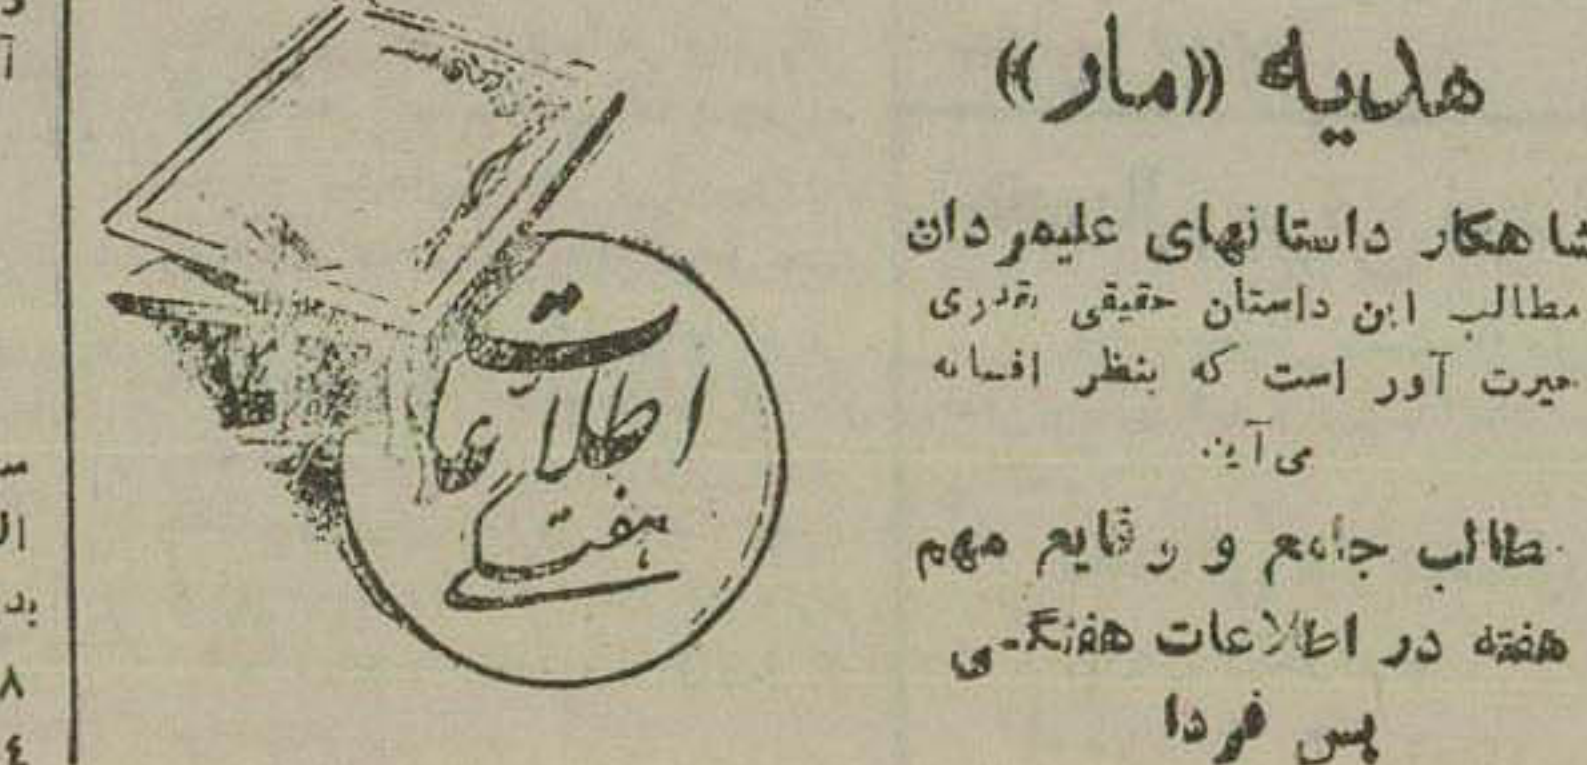 هدیه «مار»
شاهکار داستانهای علیمردان
مطالب این داستان حقیقی بقدری
حیرت آور است که بنظر افسانه
می‌آید.
مطالب جامع و وقایع مهم
هفته در اطلاعات هفتگی
پس فردا
اطلاعات
هفتگی